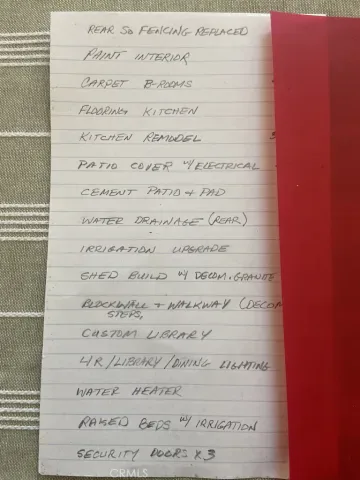 REAR SO FENCING REPLACED
PAINT INTERIOR
CARPET B-ROOMS
FLOORING KITCHEN
KITCHEN REMODEL
PATIO COVER W/ELECTRICAL
CEMENT PATIO + PAD
WATER DRAINAGE (REAR)
IRRIGATION UPGRADE
SHED BUILD W/ DECOM. GRANITE
BLOCKWALL + WALKWAY (DECOM
STEPS,
CUSTOM LIBRARY
LIBRARY/DINING LIGHTING
WATER HEATER
RAISED BEDS W/ IRRIGATION
SECURITY DOORS X3
CRMLS